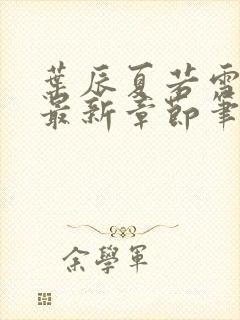 葉辰夏若雪
最新章節筆
余學軍